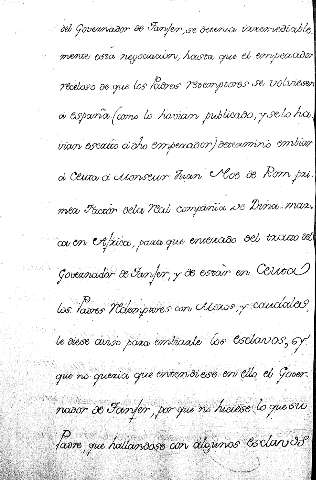 del Governador de Tanser, se detenia irremediable,
mente esta negociacion, hasta que el emperador
receloso de que los Padres redemptores se volviesen
a españa (como lo havian publicado, y selo ha,
vian escrito a dho emperador) determinò embiar
à Ceuta à Monseur Juan Mos de Rom, pri,
mer Factor dela Real compañia de Dina-mar,
ca en Africa, para que enterado del trato del
Governador de Tanser, y de estàr en Ceuta
los Padres Redemptores con Moros, y caudales,
le diese aviso para embiarle los esclavos, y
que no queria que entendiese en ello el Gover-
nador de Tanser, por que no hiciese lo que su
Padre, que hallandose con algunos esclavos